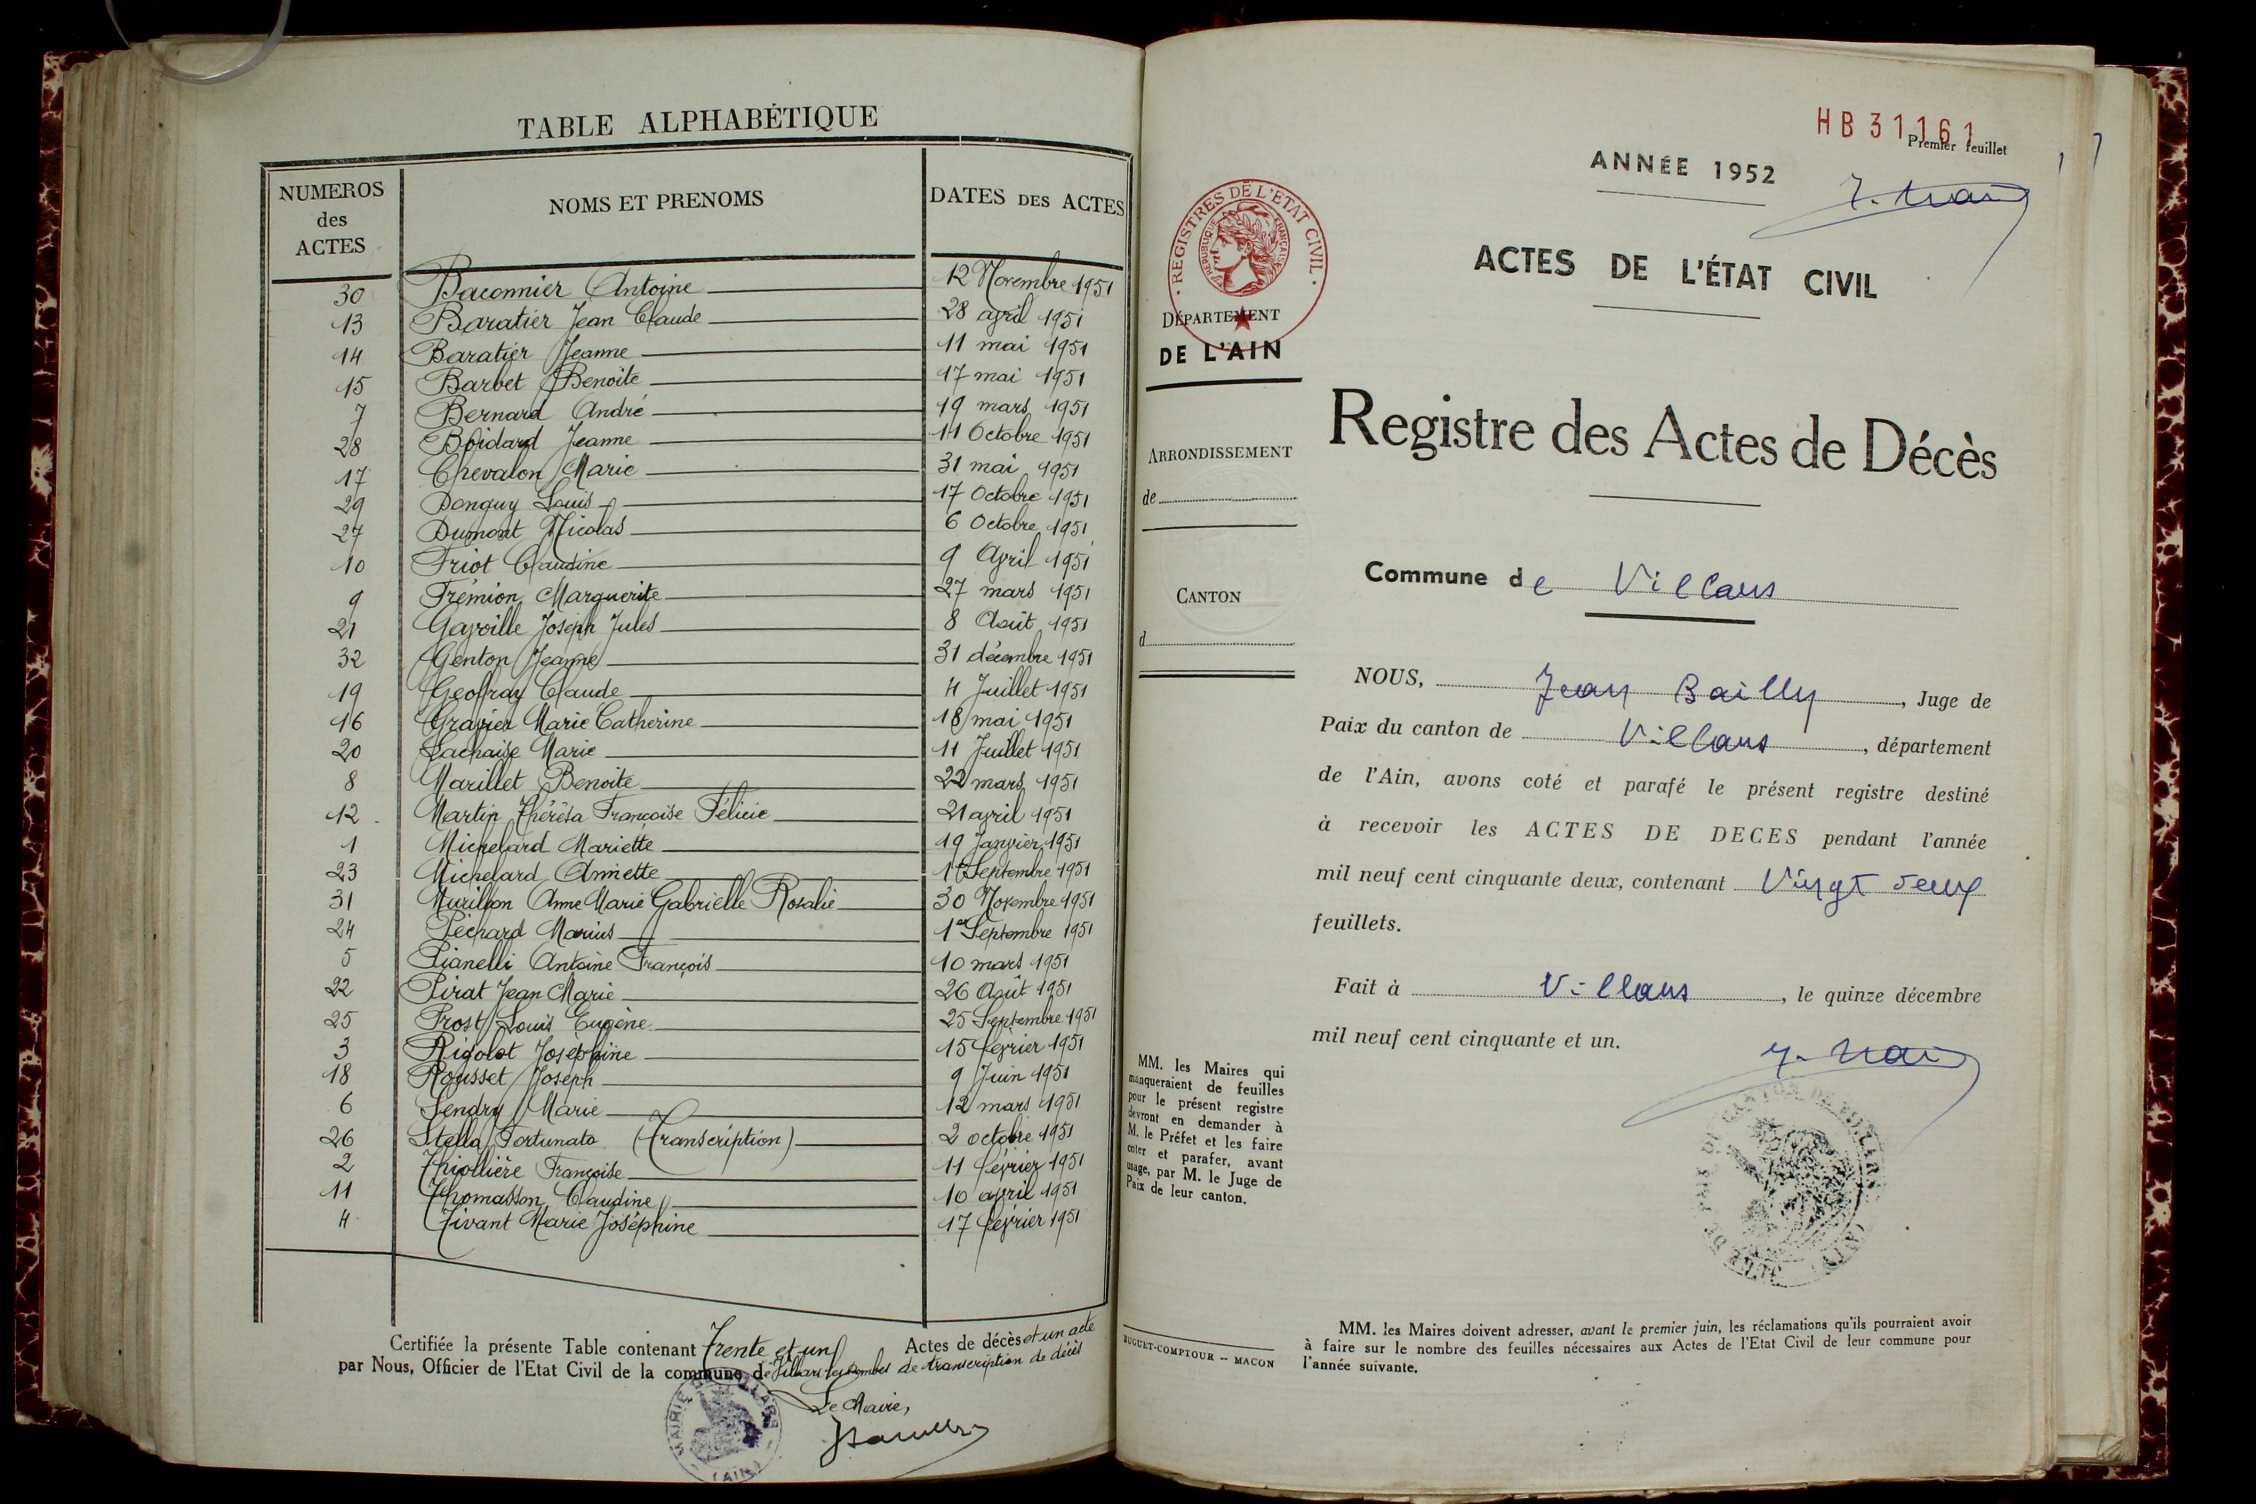 TABLE ALPHABÉTIQUE
NUMEROS des ACTES NOMS ET PRENOMS DATES DES ACTES
30 Baconnier Antoine 12 Novembre 1951
13 Baratier Jean Claude 28 avril 1951
14 Baratier Jeanne 11 mai 1951
15 Barbet Benoite 17 mai 1951
7 Bernard André 19 mars 1951
28 Boidard Jeanne 11 Octobre 1951
17 Chevalon Marie 31 mai 1951
29 Donguy Louis 17 Octobre 1951
27 Dumont Nicolas 6 Octobre 1951
10 Friot Claudine 9 Avril 1951
9 Frémion Marguerite 27 mars 1951
21 Gayville Joseph Jules 8 Août 1951
32 Genton Jeanne 31 décembre 1951
19 Geoffray Claude 4 Juillet 1951
16 Gravier Marie Catherine 18 mai 1951
20 Lachaise Marie 11 Juillet 1951
8 Marillet Benoite 22 mars 1951
12 Martin Thérésa Françoise Félicie 21 avril 1951
1 Michelard Mariette 19 Janvier 1951
23 Michelard Annette Septembre 1951
31 Murillon Anne Marie Gabrielle Rosalie 30 Novembre 1951
24 Péchard Marius 1er Septembre 1951
5 Pianelli Antoine François 10 mars 1951
22 Pirat Jean Marie 26 Août 1951
25 Prost Louis Eugène 25 Septembre 1951
3 Rigolot Joséphine 15 février 1951
18 Rousset Joseph 9 Juin 1951
6 Sendry Marie 12 mars 1951
26 Stella Fortunato (Transcription) 2 octobre 1951
2 Thiollière Françoise 11 février 1951
11 Thomasson Claudine 10 avril 1951
4 Tivant Marie Joséphine 17 février 1951
Certifiée la présente Table contenant Trente et un Actes de décès et un acte
par Nous, Officier de l'Etat Civil de la commune de Villars les Dombes de transcription de décès
Le Maire,
MAIRIE DE VILLARS (AIN)
HB31161
Premier feuillet
ANNÉE 1952
REGISTRES DE L'ÉTAT CIVIL
REPUBLIQUE FRANÇAISE
ACTES DE L'ÉTAT CIVIL
DÉPARTEMENT
DE L'AIN
Registre des Actes de Décès
ARRONDISSEMENT
de
CANTON
d
Commune de Villars
NOUS, Jean Bailly, Juge de
Paix du canton de Villars, département
de l'Ain, avons coté et parafé le présent registre destiné
à recevoir les ACTES DE DECES pendant l'année
mil neuf cent cinquante deux, contenant Vingt deux
feuillets.
Fait à Villars, le quinze décembre
mil neuf cent cinquante et un.
MM. les Maires qui
manqueraient de feuilles
pour le présent registre
devront en demander à
M. le Préfet et les faire
coter et parafer, avant
usage, par M. le Juge de
Paix de leur canton.
BUGUET-COMPTOUR -- MACON
MM. les Maires doivent adresser, avant le premier juin, les réclamations qu'ils pourraient avoir
à faire sur le nombre des feuilles nécessaires aux Actes de l'Etat Civil de leur commune pour
l'année suivante.